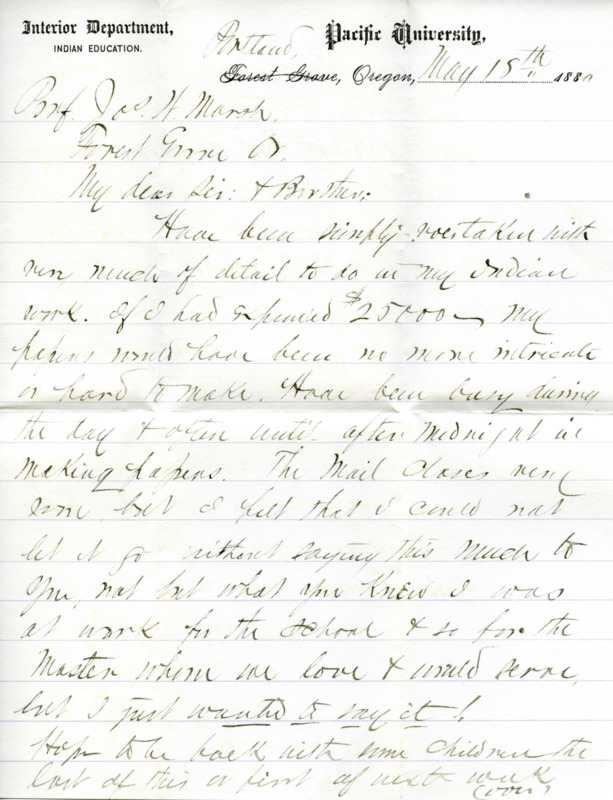 Interior Department,
INDIAN EDUCATION.
Pacific University,
Portland,
Forest Grove, Oregon, May 15th 1880
Prof. Jos. W. Marsh.
Forest Grove Or.
My dear Sir: & Brother:
Have been simply overtaken with
very much of detail to do in my Indian
work. If I had expended $25000— my
papers would have been no more intricate
or hard to make. Have been busy during
the day & often until after midnight in
making papers. The Mail closes very
soon, but I felt that I could not
let it go without saying this much to
you, not but what you knew I was
at work for the school & so for the
Master whom we love & would serve,
but I just wanted to say it!
Hope to be back with some children the
last of this or first of next week
(over)